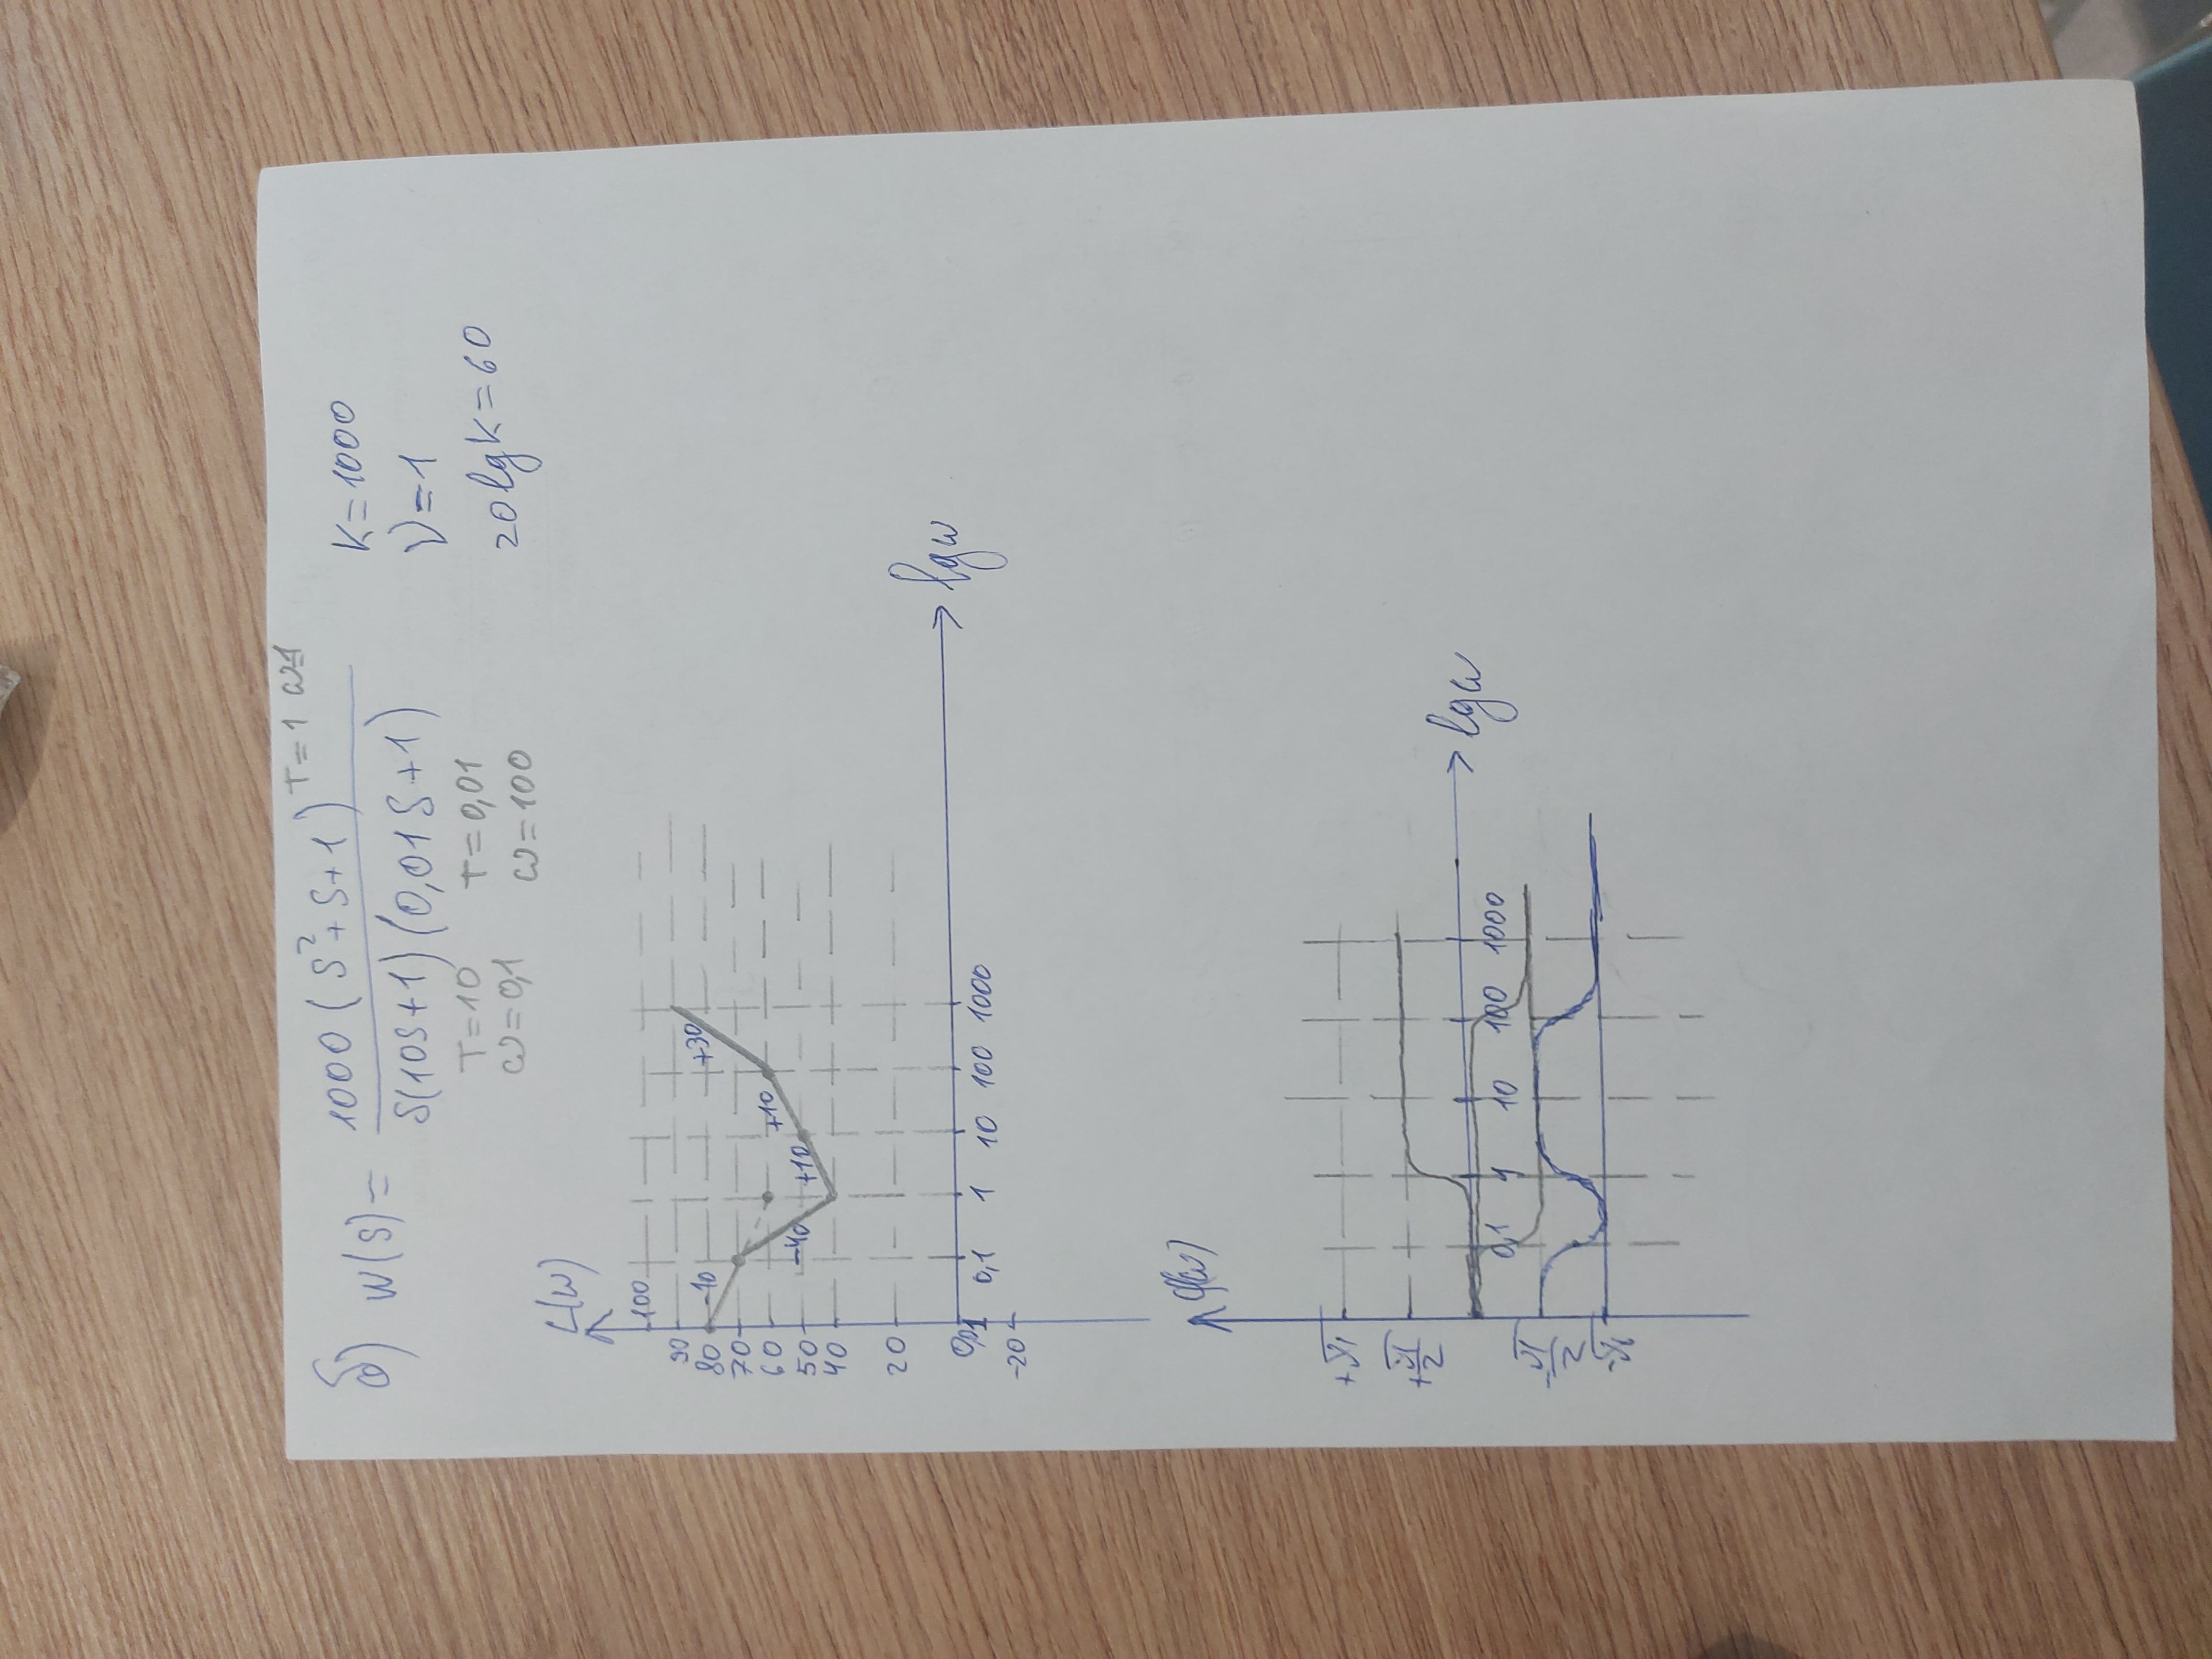 б) W(s) = 1000 (s²+s+1) / s(10s+1)(0,01s+1)
T=1 ω=1
T=10 T=0,01
ω=0,1 ω=100
K=1000
ν=1
20lgK=60
L(ω)
100
90
80
70
60
50
40
20
-20
-10
-40
+10
+10
+30
0,01 0,1 1 10 100 1000
lgω
φ(ω)
+π
+π/2
-π/2
-π
0,1 1 10 100 1000
lgω